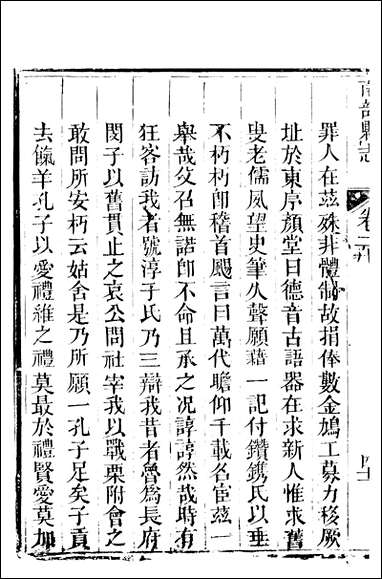 南部縣志
卷二九
罪人在茲殊非體制故捐俸數金鳩工募力移厥
址於東序顏堂曰德音古語器在求新人惟求舊
叟老儒風望史筆人聲願藉一記付鑽鐫氏以垂
不朽朽卽稽首颺言曰萬代瞻仰千載名宦茲一
舉哉父召無諾師不命且承之况諄諄然哉時有
狂客訪我者號淳于氏乃三辯我昔者魯爲長府
閔子以舊貫止之哀公問社宰我以戰栗附會之
敢問所安朽云姑舍是乃所願一孔子足矣子貢
去餼羊孔子以愛禮維之禮莫最於禮賢愛莫加